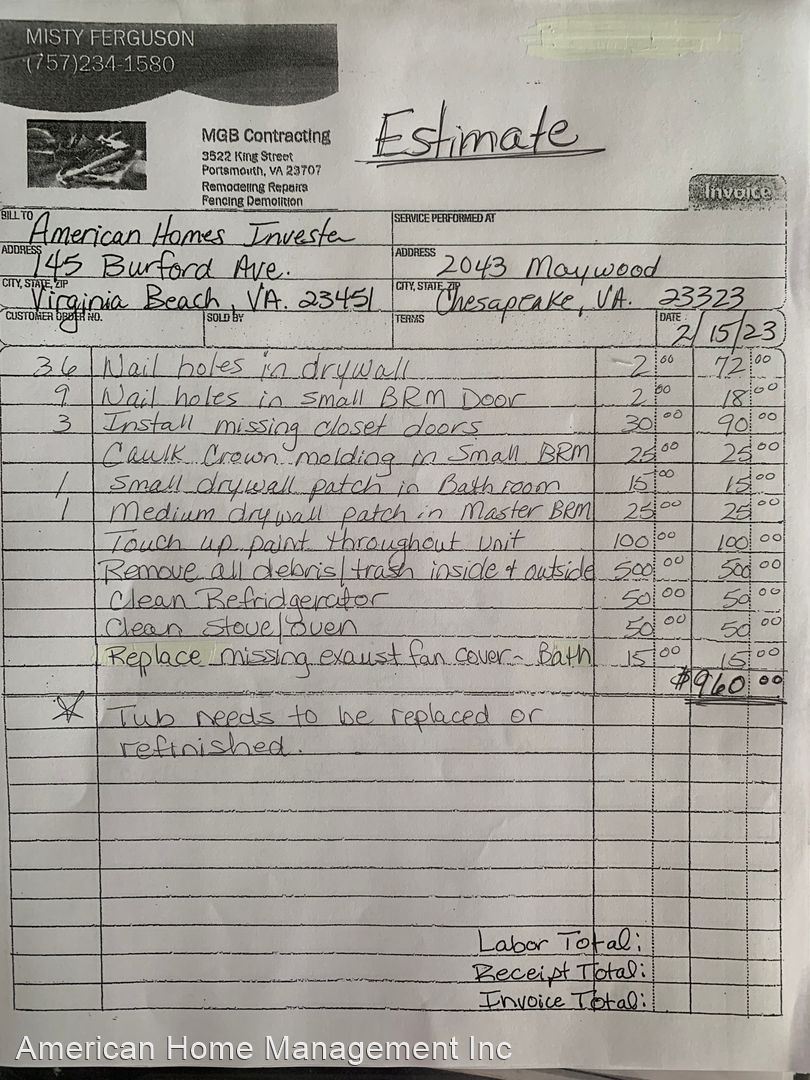 MISTY FERGUSON
(757)234-1580
Estimate
MGB Contracting
3522 King Street
Portsmouth, VA 23707
Remodeling Repairs
Fencing Demolition
Invoice
BILL TO American Homes Investe
SERVICE PERFORMED AT
ADDRESS 145 Burford Ave.
ADDRESS 2043 Maywood
CITY, STATE, ZIP Virginia Beach, VA. 23451
CITY, STATE, ZIP Chesapeake, VA. 23323
CUSTOMER ORDER NO. SOLD BY TERMS DATE 2/15/23
36 Nail holes in drywall 2 00 72 00
9 Nail holes in small BRM Door 2 00 18 00
3 Install missing closet doors 30 00 90 00
Caulk Crown molding in Small BRM 25 00 25 00
1 Small drywall patch in Bathroom 15 00 15 00
1 Medium drywall patch in Master BRM 25 00 25 00
Touch up paint throughout unit 100 00 100 00
Remove all debris/trash inside & outside 500 00 500 00
Clean Refridgerator 50 00 50 00
Clean Stove/oven 50 00 50 00
Replace missing exaust fan cover - Bath 15 00 15 00
$960 00
Tub needs to be replaced or
refinished.
Labor Total:
Receipt Total:
Invoice Total:
American Home Management Inc